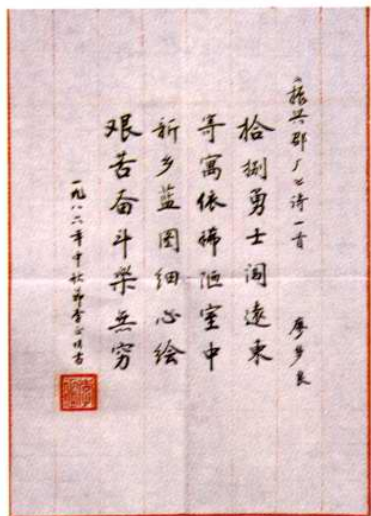 振兴郡厂诗一首
拾捌勇士闯遼東
寄寓依稀陋室中
新乡蓝图细心绘
艰苦奋斗樂无穷
一九八六年中秋节李正明书